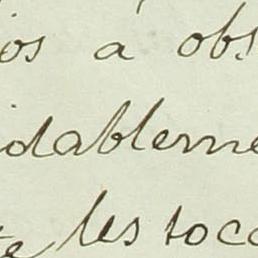 ios á obs
idableme
te les toca